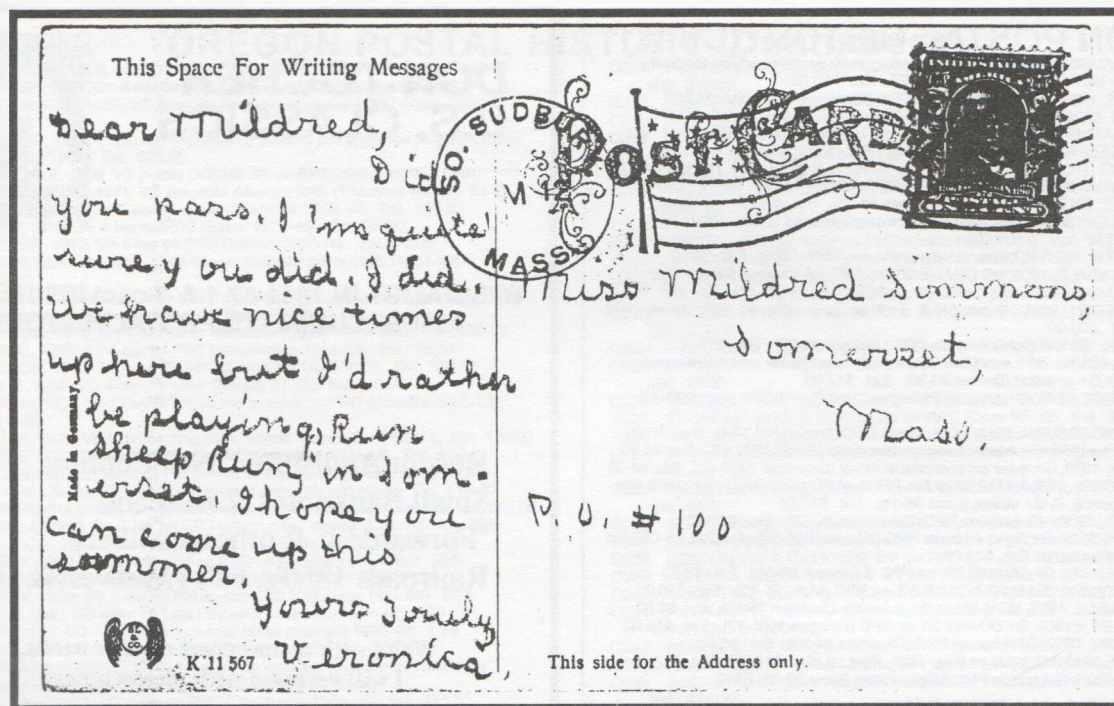 This Space For Writing Messages
Dear Mildred,
Did
you pass. I'm quite
sure you did. I did.
We have nice times
up here but I'd rather
be playing, Run
Sheep Run, in Som
erset, I hope you
can come up this
summer,
Yours Truly
Veronica,
Made in Germany
K 11567
SO. SUDBURY
MASS.
POST CARD
Miss Mildred Simmons
Somerset,
Mass
P.O. #100
This side for the Address only.